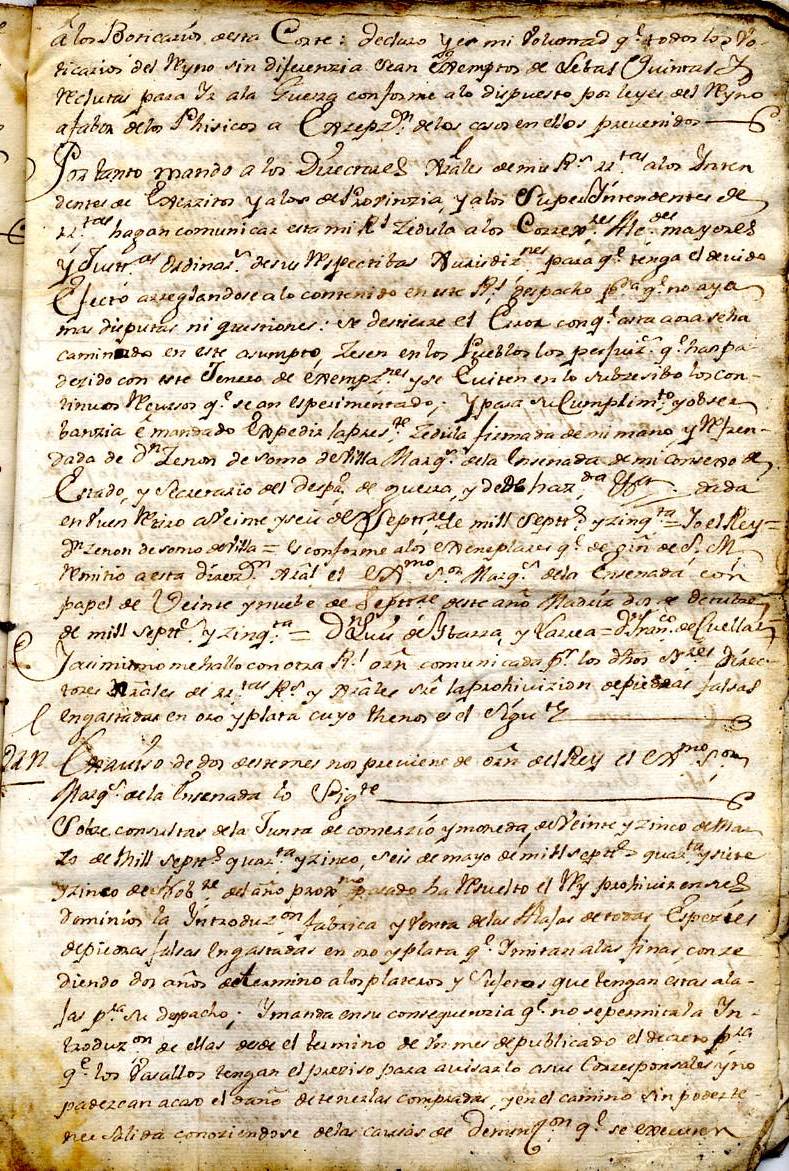 a los Boticarios desta Corte: declaro y es mi Voluntad q.e todos los Bo-
ticarios del Reyno sin diferenzia sean Exemptos de Lebas Quintas y
Reclutas para Ir ala Guerra conforme alo dispuesto por leyes del Reyno
afabor delos Phisicos a Exepz.on delos casos en ellos prevenidos
Por tanto mando a los Directores Grâles de mis R.s rr.tas alos Inten
dentes de Exerzitos y alos de Provinzia, y alos Superintendentes de
rr.tas hagan comunicar esta mi R.l Zedula a los Correx.res Alc.des mayores
y Justt.as Ordinar.s de sus Respectibas Jurisdiz.nes para q.e tenga el devido
Efecto arreglandose alo contenido en este R.l despacho p.a q.e no aya
mas disputas ni questiones: se destierre el Error con q.e asta aora se ha
caminado en este asumpto, Zesen en los Pueblos los perjuiz.s q.e han pa
dezido con este Jenero de exempz.nes y se Eviten en lo subzesibo los con-
tinuos Recursos q.e se an esperimentado; Y para su Cumplim.to y obser
banzia é mandado Expedir la pres.te Zedula firmada de mi mano y Refren-
dada de D.n Zenon de somo de Villa Marq.s dela Ensenada de mi consexo de
Estado, y Secretario del Desp.o de guerra, y de haz.da dada
en Buen Retiro a Veinte y seis de Septt.re de mill Sept.s y zinq.ta = Yo el Rey =
D.n Zenon de somo de Villa = Es conforme a los Exemplares q.e de orn de S. M.
Remitio a esta direz.on Grâl el Ex.mo S.or Marq.s dela Ensenada con
papel de Veinte y nuebe de Septt.re deste año Madrid dos de octubre
de mill septt.s y zinq.ta = D.n Luis de Ibarra, y Larrea = D.n Fran.co de Cuellar
Y asimismo me hallo con otra R.l orn comunicada p.r los dhos S.res Direc-
tores Grâles de rr.tas R.s y Grâles sre la prohivizion de piedras falsas
engastadas en oro y plata cuyo thenor es el Sigu.te
Con aviso de dos deste mes nos previene de orn del Rey el Ex.mo S.or
Marq.s dela Ensenada lo Sig.te
Sobre consultas dela Junta de comerzio y moneda, de Veinte y zinco de Mar
zo de Mill septt.s quar.ta y zinco, seis de mayo de mill septt.s quar.ta y siete
y zinco de Octob.re del año prox.mo pasado ha Resuelto el Rey prohivir en sus
dominios la Introduz.on fabrica y Venta de las Alajas de todas Espezies
de piedras falsas Engastadas en oro y plata q.e Imitan alas finas, conze
diendo dos años de termino alos plateros y Sujetos que tengan estas ala-
jas p.ra su depacho; Y manda en su consequenzia q.e no se permita la In-
troduz.on de ellas desde el termino de Un mes de publicado el decreto p.ra
q.e los Vasallos tengan el preziso para avisarlo asus Corresponsales y no
padezcan acaso el daño de tenerlas compradas, y en el camino sin poder te-
ner salida conoziendose de las causas de Denunz.on q.e se executen